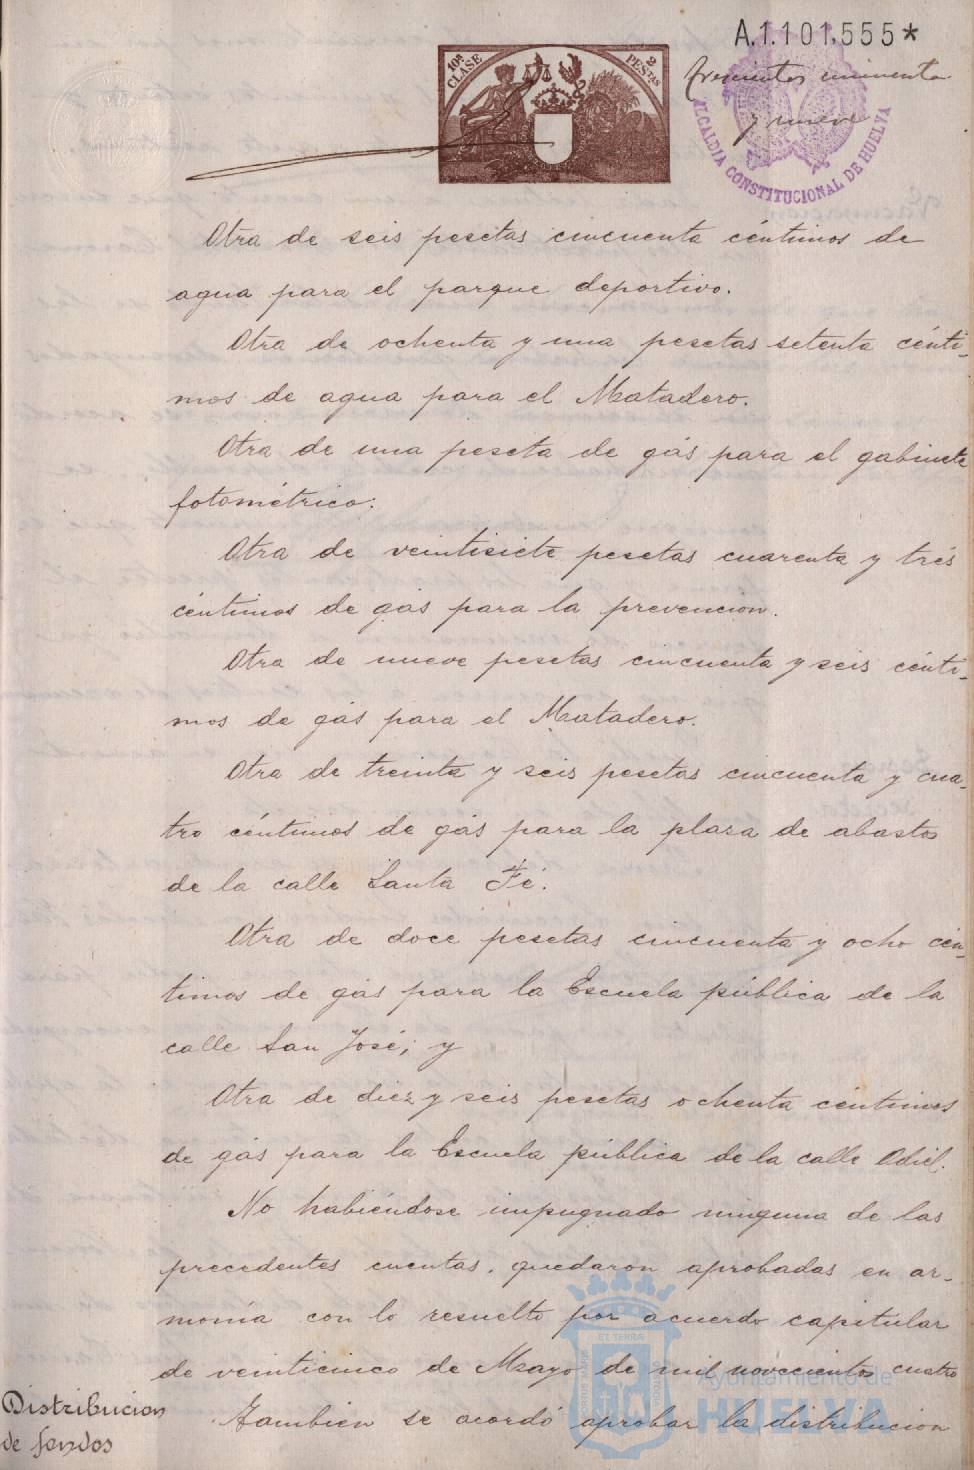 A.1.101.555*
10ª CLASE
2 PESTAS
ALCALDIA CONSTITUCIONAL DE HUELVA
y nueve
Otra de seis pesetas cincuenta céntimos de
agua para el parque deportivo.
Otra de ochenta y una pesetas setenta cénti-
mos de agua para el Matadero.
Otra de una peseta de gás para el gabinete
fotométrico.
Otra de veintisiete pesetas cuarenta y trés
céntimos de gás para la prevencion.
Otra de nueve pesetas cincuenta y seis cénti-
mos de gás para el Matadero.
Otra de treinta y seis pesetas cincuenta y cua-
tro céntimos de gás para la plaza de abastos
de la calle Santa Fé.
Otra de doce pesetas cincuenta y ocho cén-
timos de gás para la Escuela pública de la
calle San José; y
Otra de diez y seis pesetas ochenta céntimos
de gás para la Escuela pública de la calle Odiel.
No habiéndose impugnado ninguna de las
precedentes cuentas, quedaron aprobadas en ar-
monía con lo resuelto por acuerdo capitular
de veinticinco de Mayo de mil novecientos cuatro
Distribucion
de fondos
Tambien se acordó aprobar la distribucion
Ayuntamiento de
HUELVA